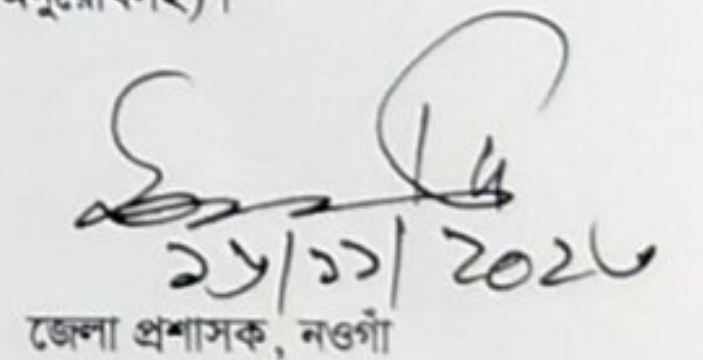 ১৬/১১/২০২৫
জেলা প্রশাসক, নওগাঁ